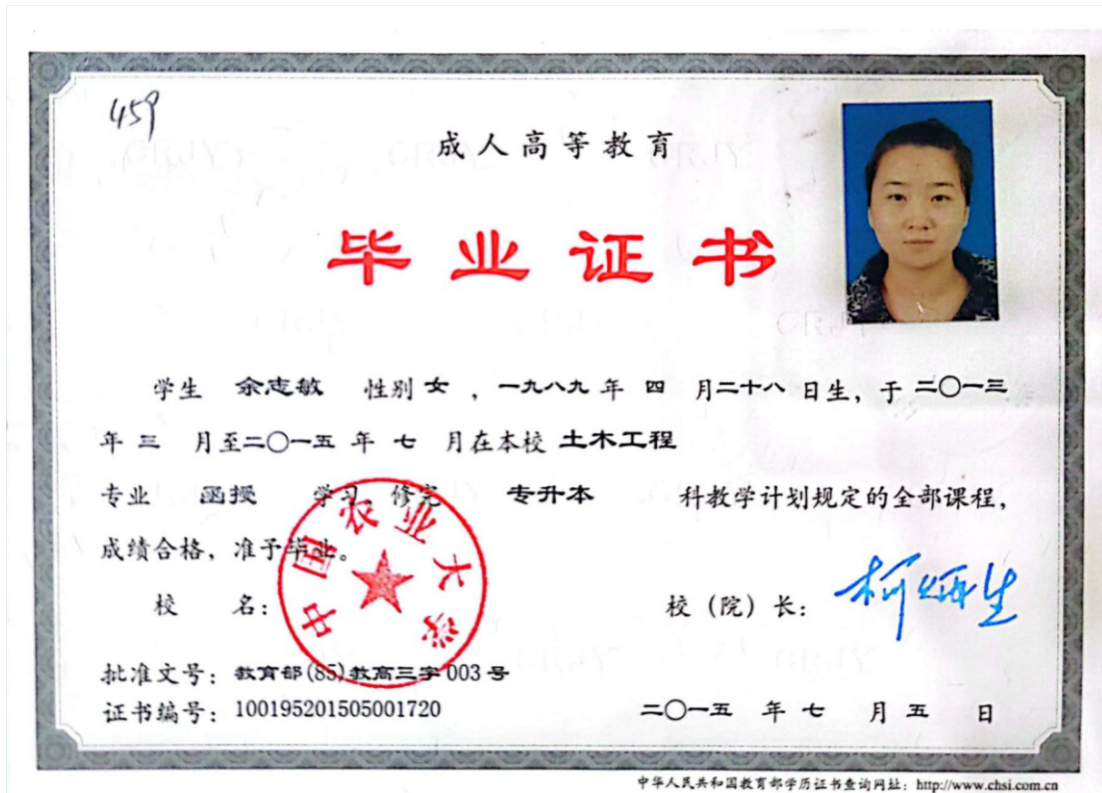 459
成人高等教育
毕业证书
学生 余志敏 性别 女 ,一九八九 年 四 月二十八 日生,于 二〇一三
年 三 月至二〇一五 年 七 月在本校 土木工程
专业 函授 学习 修完 专升本 科教学计划规定的全部课程,
成绩合格,准予毕业。
中国农业大学
校 名: 校(院)长: 柯炳生
批准文号:教育部(85)教高三字003号
证书编号:100195201505001720 二〇一五 年 七 月 五 日
中华人民共和国教育部学历证书查询网址:http://www.chsi.com.cn